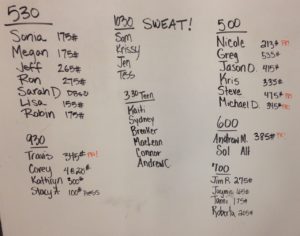 530
Sonia 175#
Megan 175#
Jeff 265#
Ron 275#
Sarah D
Lisa 155#
Robin 175#
930
Travis 345# PR!
Corey
Kathryn 300#
Stacy A 100#
1030 SWEAT!
Sam
Krissy
Jen
Tess
330 Teen
Kaiti
Sydney
Breaker
MacLean
Connor
Andrew C
500
Nicole 213# PR
Greg 535#
Jason O. 415#
Kris 335#
Steve 475# PR
Michael D. 345# PR
600
Andrew M. 385# PR
Sol Alt
700
Jim R 275#
Jaymie 65#
Tami 175#
Roberta 205#